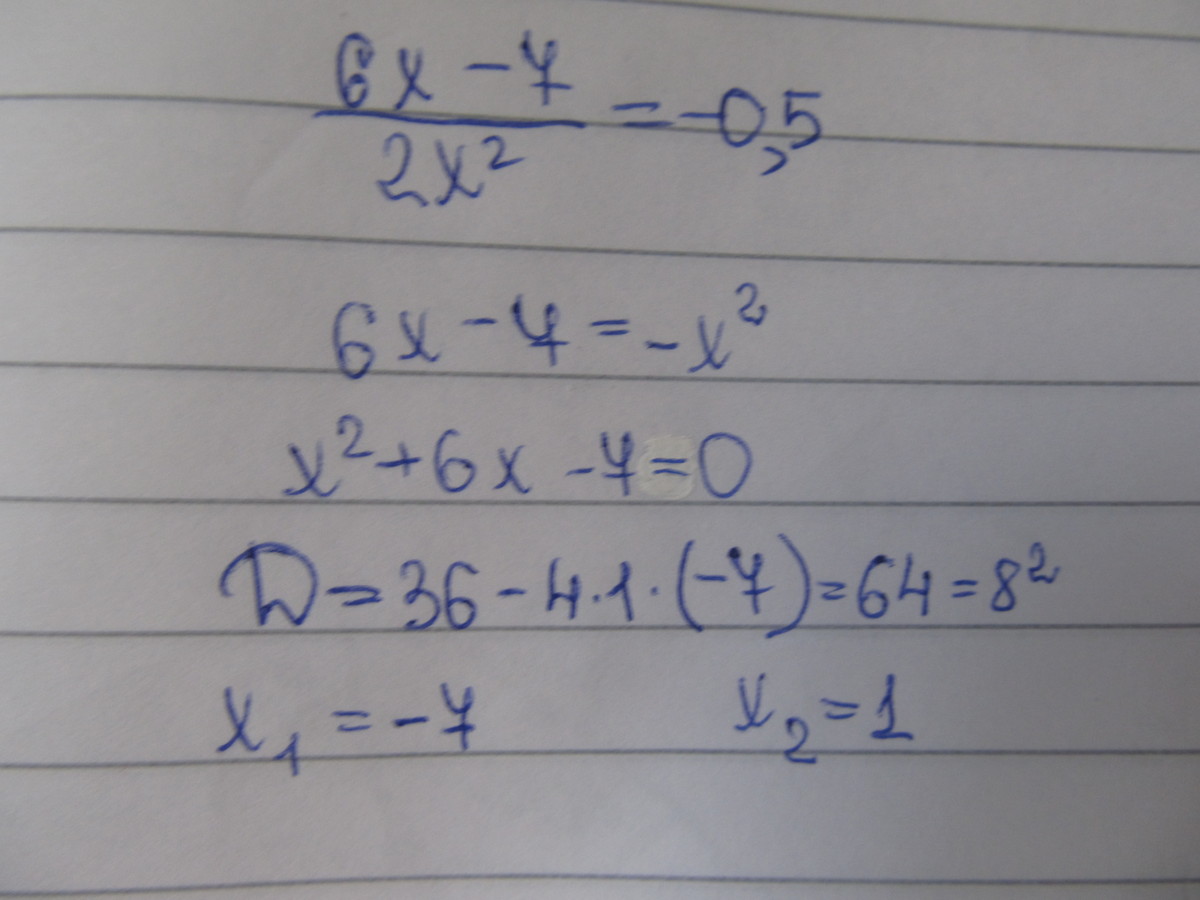 6x - 7
2x² = -0,5
6x - 7 = -x²
x² + 6x - 7 = 0
D = 36 - 4·1·(-7) = 64 = 8²
x₁ = -7 x₂ = 1